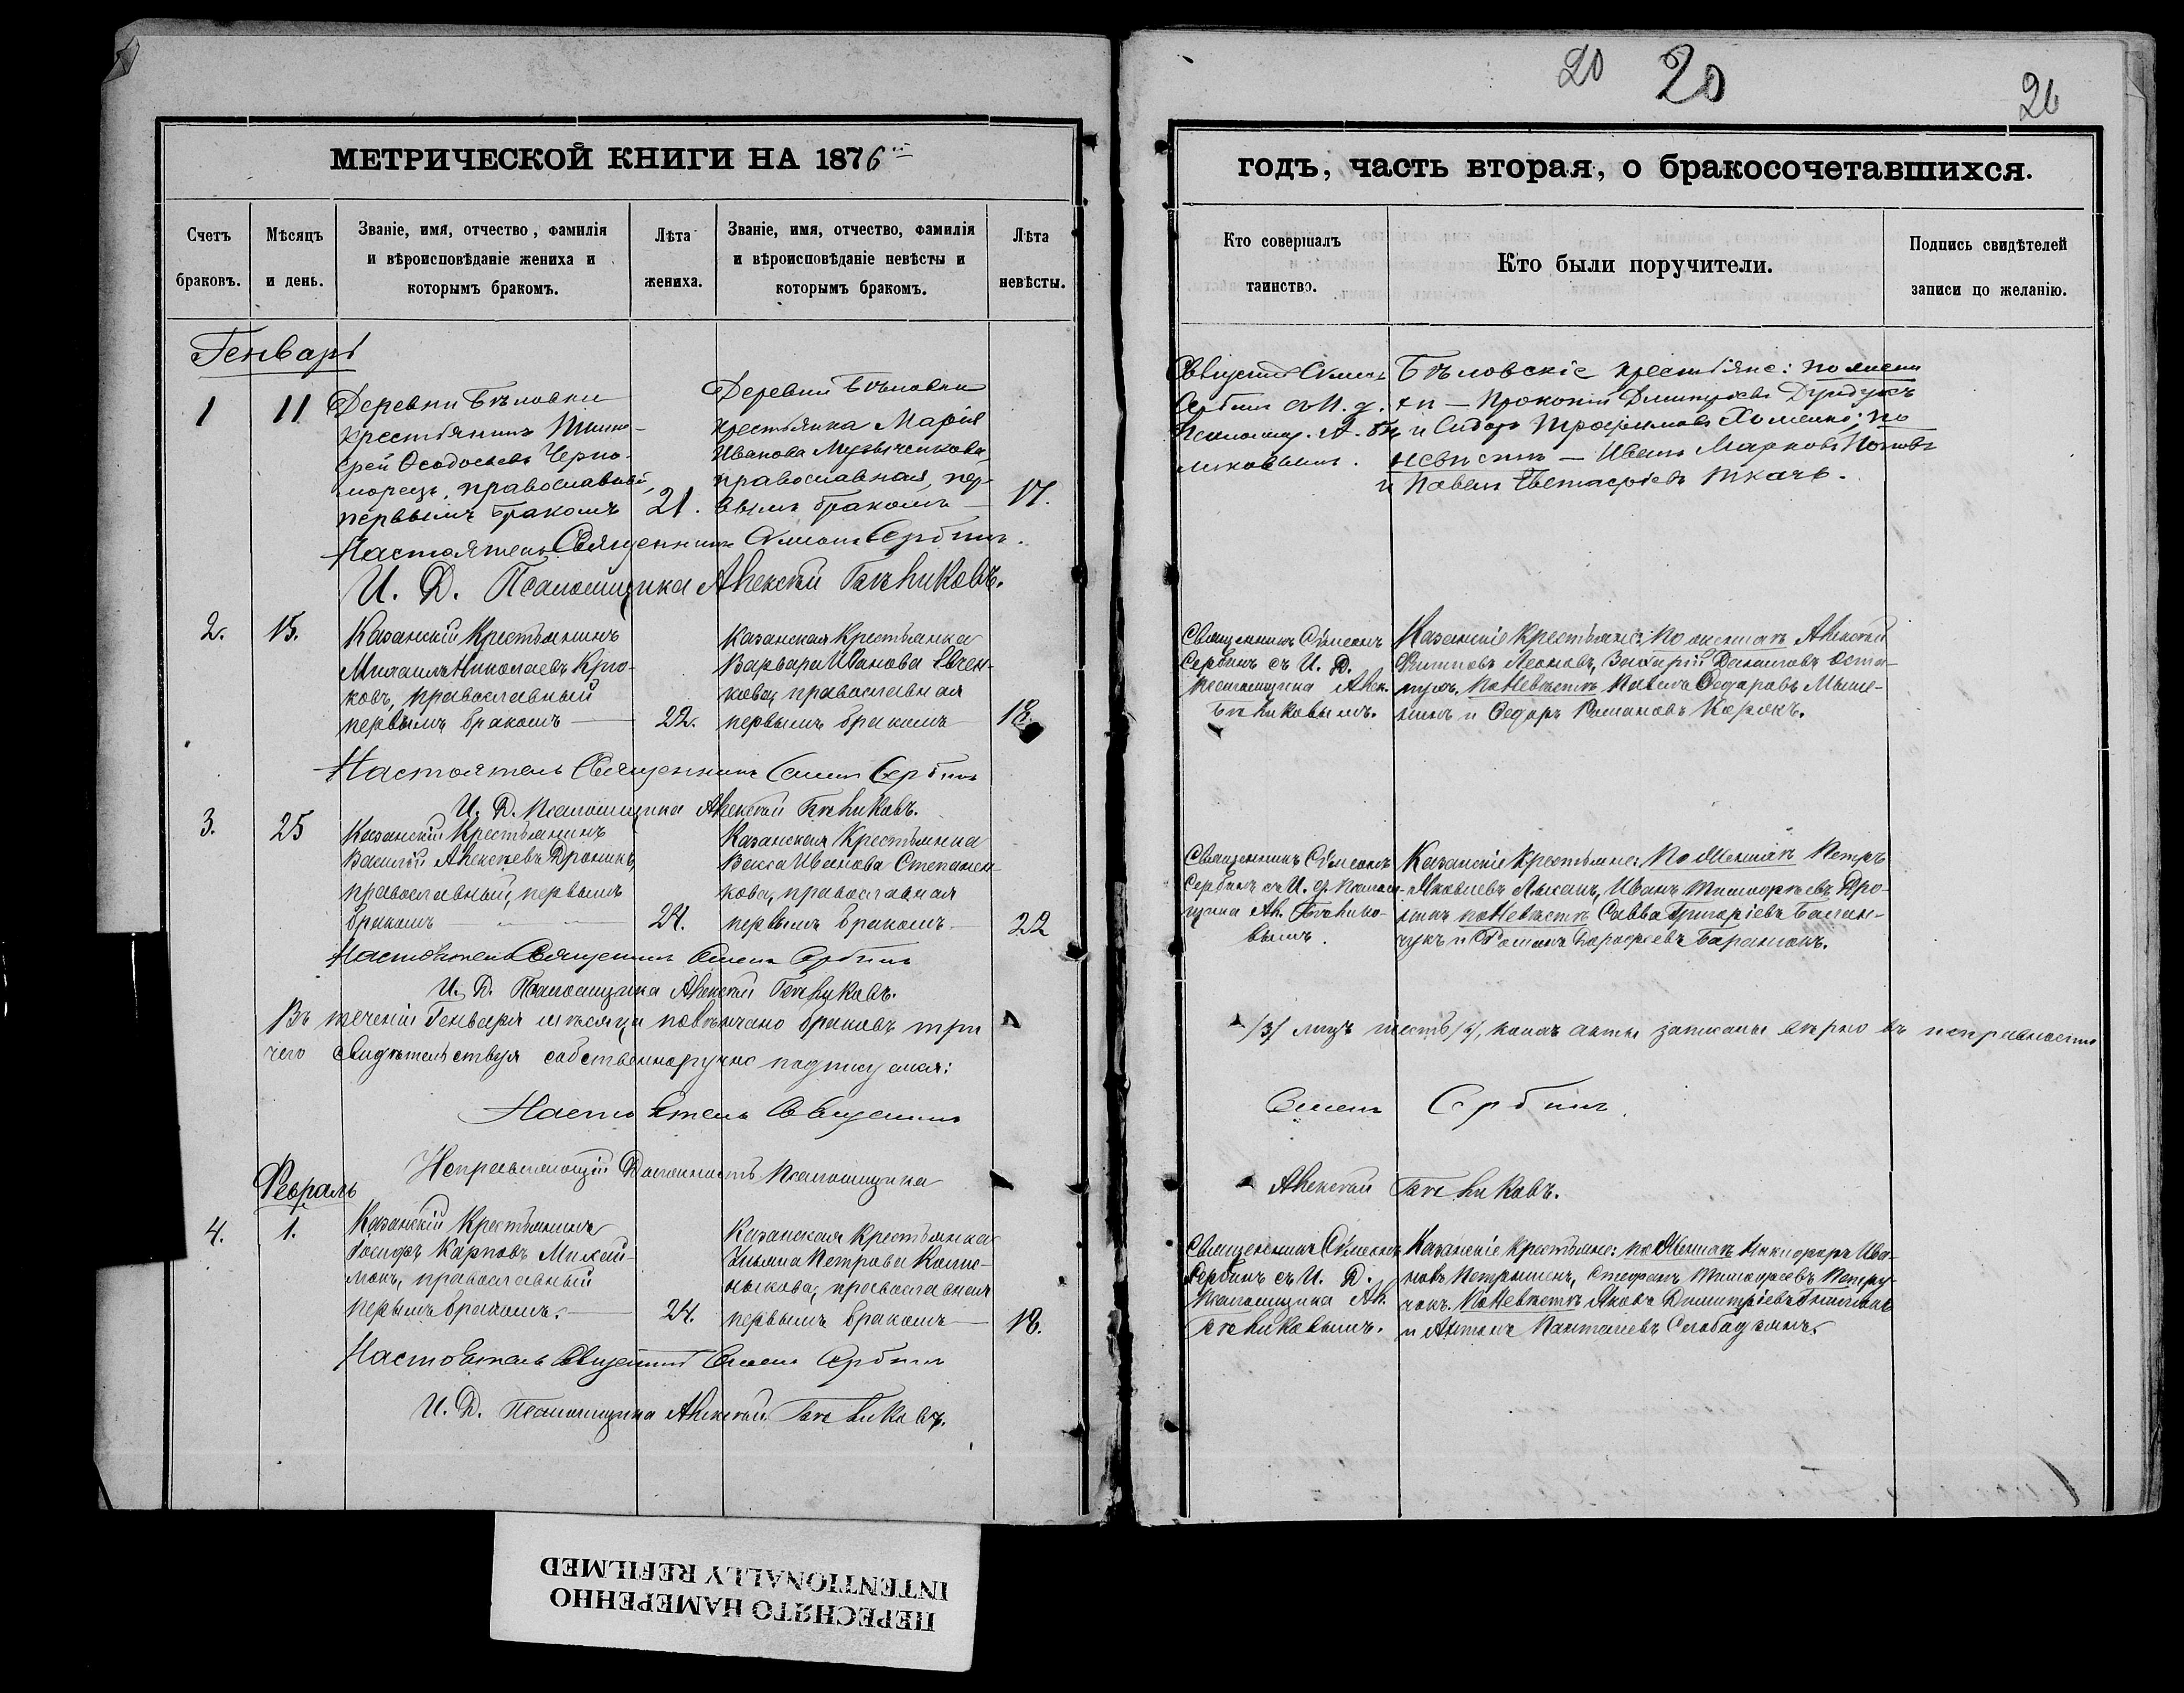 20 20 26
МЕТРИЧЕСКОЙ КНИГИ НА 1876
годъ, часть вторая, о бракосочетавшихся.
Счетъ
браковъ.
Мѣсяцъ
и день.
Званіе, имя, отчество, фамилія
и вѣроисповѣданіе жениха и
которымъ бракомъ.
Лѣта
жениха.
Званіе, имя, отчество, фамилія
и вѣроисповѣданіе невѣсты и
которымъ бракомъ.
Лѣта
невѣсты.
Кто совершалъ
таинство.
Кто были поручители.
Подпись свидѣтелей
записи по желанію.
Генварь
1
11
Деревни Бѣловки
крестьянинъ Тимо-
фей Феодосьевъ Черно-
морецъ, православный
первымъ бракомъ
21.
Деревни Бѣловки
крестьянка Марія
Иванова Музыченкова,
православная, пер-
вымъ бракомъ
17.
Сербинъ съ И. д.
Бѣловскіе крестьяне: по жени
хѣ — Прокопій Димитріевъ Дундукъ
и Сидоръ Трофимовъ Хоменко; по
невѣстѣ — Иванъ Марковъ Поповъ
и Павелъ Евстафіевъ Ткачъ.
Настоятель Священникъ Симеонъ Сербинъ.
И. Д. Псаломщика Алексѣй Бѣликовъ.
2.
15.
Казанскій Крестьянинъ
Михаилъ Николаевъ Крю-
ковъ, православный
первымъ бракомъ
22.
Казанская Крестьянка
Варвара Иванова Евчен-
кова, православная
первымъ бракомъ
18.
Священникъ Симеонъ
Сербинъ съ И. Д.
псаломщика Алек.
Бѣликовымъ.
Казанскіе Крестьяне: По женихѣ Алексѣй
Филиповъ Леоновъ, Захарій Даниловъ Оста-
пукъ. По Невѣстѣ Павелъ Федоровъ Мыше-
нинъ и Федоръ Романовъ Корокъ.
Настоятель Священникъ Симеонъ Сербинъ
И. Д. Псаломщика Алексѣй Бѣликовъ.
3.
25
Казанскій Крестьянинъ
Василій Алексѣевъ Дронинъ,
православный, первымъ
бракомъ
24.
Казанская Крестьянка
Васса Иванова Степанен-
кова, православная
первымъ бракомъ
22
Священникъ Симеонъ
Сербинъ съ И. д. Псалом-
щика Ал. Бѣлико-
вымъ.
Казанскіе Крестьяне: По Женихѣ Петръ
Яковлевъ Лысакъ, Иванъ Тимофѣевъ Дро-
нинъ по Невѣстѣ Савва Григоріевъ Балан-
чукъ и Романъ Дорофеевъ Баранюкъ.
Настоятель Священникъ Симеонъ Сербинъ
И. Д. Псаломщика Алексѣй Бѣликовъ.
Въ теченіи Генваря мѣсяца повѣнчано браковъ три /3/ лицъ шесть /6/, коихъ акты записаны вѣрно въ исправности
чего свидѣтельствуя собственноручно подписуемся:
Настоятель Священникъ Симеонъ Сербинъ.
Исправляющій Должность Псаломщика Алексѣй Бѣликовъ.
Февраль
4.
1.
Казанскій Крестьянинъ
Іосифъ Карповъ Михай-
люкъ, православный
первымъ бракомъ.
24.
Казанская Крестьянка
Ульяна Петрова
православная
первымъ бракомъ
18.
Священникъ Симеонъ
Сербинъ съ И. Д.
Псаломщика Ал.
Бѣликовымъ.
Казанскіе Крестьяне: по Женихѣ Никифоръ Ива-
новъ Петрышенъ, Стефанъ Тимофеевъ Петру-
чокъ. По Невѣстѣ Яковъ Димитріевъ
и Антонъ Панталіевъ Слободзянъ.
Настоятель Священникъ Симеонъ Сербинъ
И. Д. Псаломщика Алексѣй Бѣликовъ.
ПЕРЕСНЯТО НАМЕРЕННО
INTENTIONALLY REFILMED